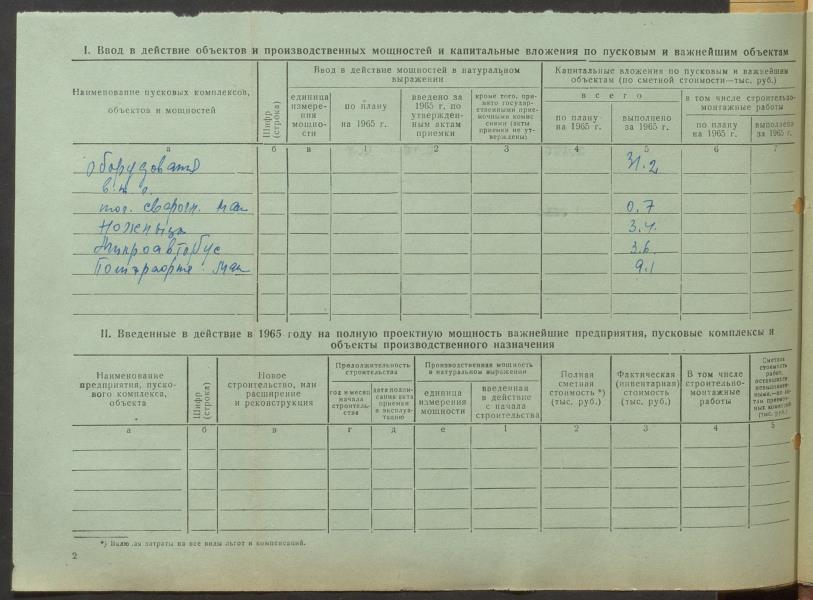 I. Ввод в действие объектов и производственных мощностей и капитальные вложения по пусковым и важнейшим объектам
Наименование пусковых комплексов,
объектов и мощностей
Шифр (строка)
Ввод в действие мощностей в натуральном
выражении
единица
измере-
ния
мощно-
сти
по плану
на 1965 г.
введено за
1965 г. по
утвержден-
ным актам
приемки
кроме того, при-
нято государ-
ственными прие-
мочными комис
сиями (акты
приемки не ут-
верждены)
Капитальные вложения по пусковым и важнейшим
объектам (по сметной стоимости—тыс. руб.)
всего
по плану
на 1965 г.
выполнено
за 1965 г.
в том числе строительно-
монтажные работы
по плану
на 1965 г.
выполнено
за 1965 г.
а б в 1 2 3 4 5 6 7
Оборудования 31.2
в.т.ч.
сварочн. маш 0.7
Ножницы 3.4.
Микроавтобус 3.6.
маш 9.1
II. Введенные в действие в 1965 году на полную проектную мощность важнейшие предприятия, пусковые комплексы и
объекты производственного назначения
Наименование
предприятия, пуско-
вого комплекса,
объекта
Шифр (строка)
Новое
строительство, или
расширение
и реконструкция
Продолжительность
строительства
год и месяц
начала
строитель-
ства
дата подпи-
сания акта
приемки
в эксплуа-
тацию
Производственная мощность
в натуральном выражении
единица
измерения
мощности
введенная
в действие
с начала
строительства
Полная
сметная
стоимость *)
(тыс. руб.)
Фактическая
(инвентарная)
стоимость
(тыс. руб.)
В том числе
строительно-
монтажные
работы
Сметная
стоимость
работ,
а б в г д е 1 2 3 4 5
*) Включая затраты на все виды льгот и компенсаций.
2